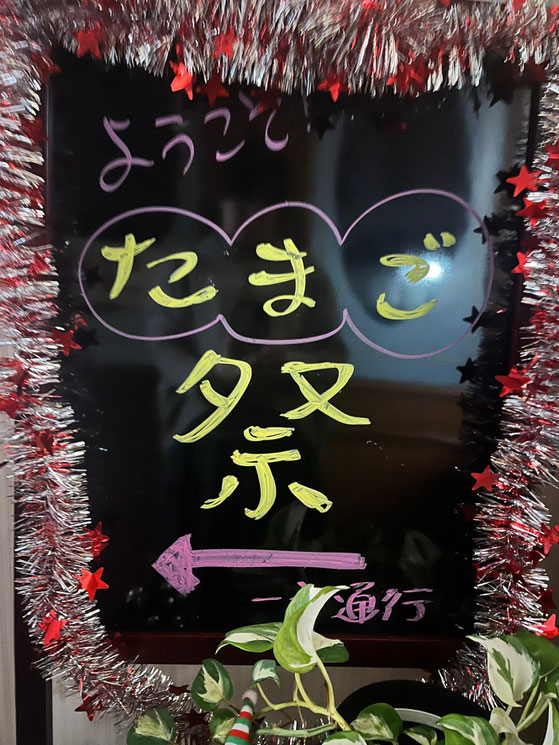 ようこそ
たまご
祭
一方通行